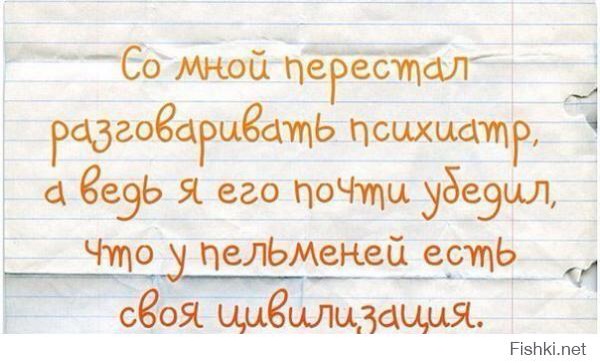 Со мной перестал
разговаривать психиатр,
а ведь я его почти убедил,
что у пельменей есть
своя цивилизация.
Fishki.net